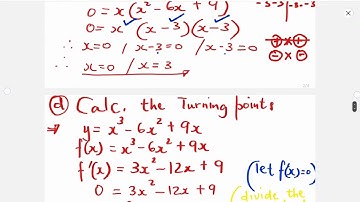 0 = x(x² - 6x + 9)
0 = x (x - 3)(x - 3)
∴ x=0 / x-3=0 / x-3=0
∴ x=0 / x=3
-3-3 | -3.-3
+ x +
- x -
(d) Calc. the Turning points
⇒ y = x³ - 6x² + 9x
f(x) = x³ - 6x² + 9x
f'(x) = 3x² - 12x + 9
(let f(x)=0)
0 = 3x² - 12x + 9
(divide the